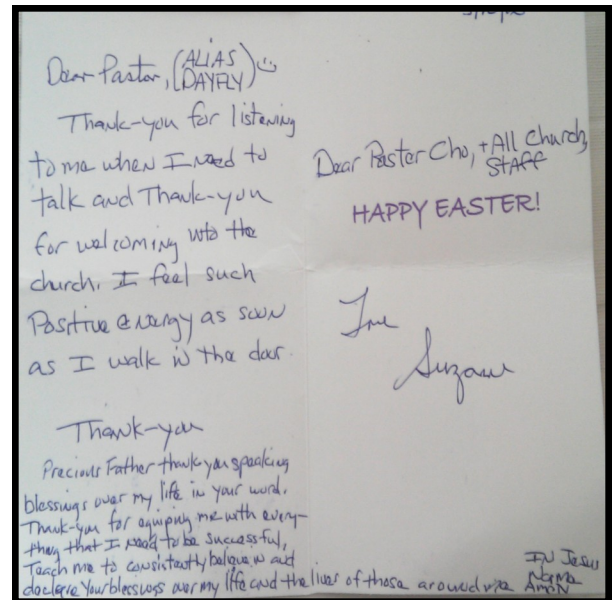 Dear Pastor, (ALIAS DAYFLY)
Thank-you for listening
to me when I need to
talk and Thank-you
for welcoming into the
church. I feel such
Positive energy as soon
as I walk in the door.
Thank-you
Precious Father thank you speaking
blessings over my life in your word.
Thank-you for equiping me with every-
thing that I need to be successful,
Teach me to consistently believe in and
declare Your blessings over my life and the lives of those around me
IN Jesus
Name
Dear Pastor Cho, + All Church
STAFF
HAPPY EASTER!
Suzanne